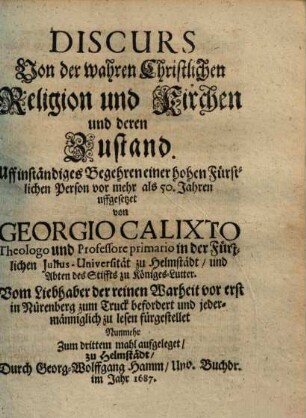 DISCURS
Von der wahren Christlichen
Religion und Kirchen
und deren
Zustand.
Uff inständiges Begehren einer hohen Fürst-
lichen Person vor mehr als 50. Jahren
uffgesetzet
von
GEORGIO CALIXTO
Theologo und Professore primario in der Fürst-
lichen Julius-Universität zu Helmstädt / und
Abten des Stiffts zu Königes-Lutter.
Vom Liebhaber der reinen Warheit vor erst
in Nürenberg zum Truck befordert und jeder-
männiglich zu lesen fürgestellet
Nunmehr
Zum drittem mahl aufgeleget /
zu Helmstädt /
Durch Georg-Wolffgang Hamm / Univ. Buchdr.
im Jahr 1687.